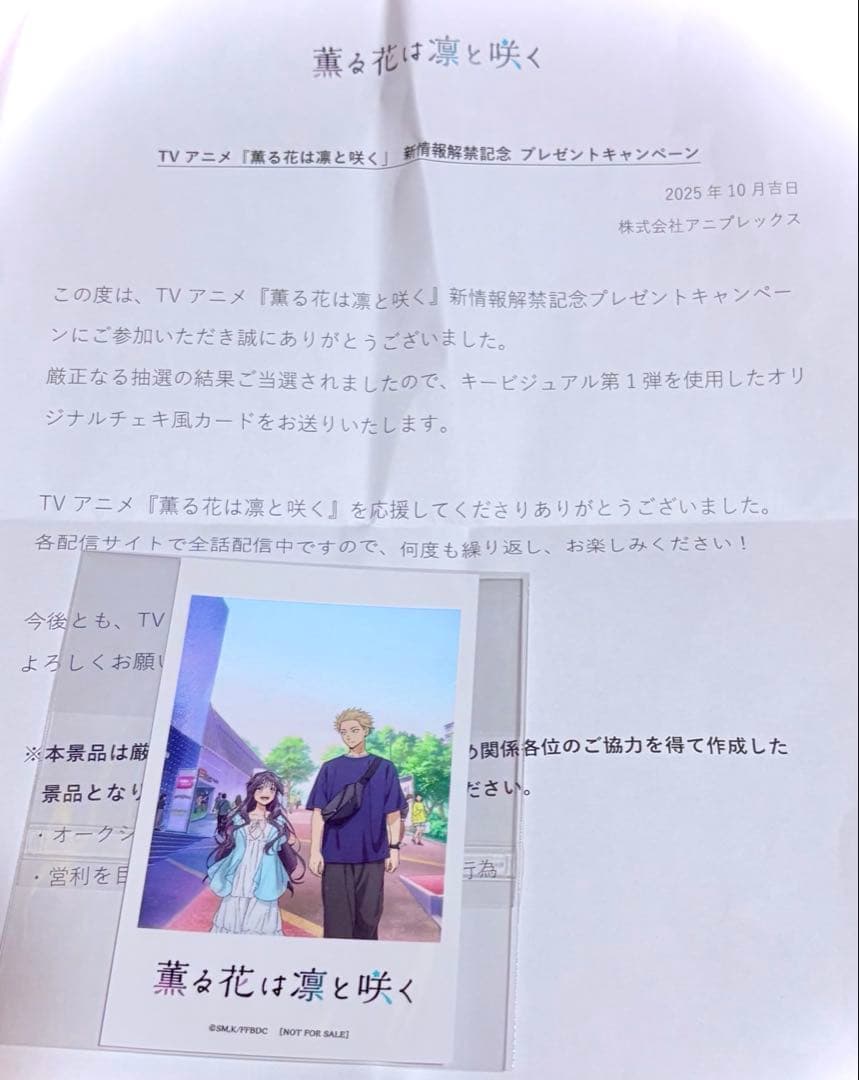 薫る花は凛と咲く
TVアニメ『薫る花は凛と咲く』 新情報解禁記念 プレゼントキャンペーン
2025年10月吉日
株式会社アニプレックス
この度は、TVアニメ『薫る花は凛と咲く』新情報解禁記念プレゼントキャンペー
ンにご参加いただき誠にありがとうございました。
厳正なる抽選の結果ご当選されましたので、キービジュアル第1弾を使用したオリ
ジナルチェキ風カードをお送りいたします。
TVアニメ『薫る花は凛と咲く』を応援してくださりありがとうございました。
各配信サイトで全話配信中ですので、何度も繰り返し、お楽しみください！
今後とも、TV
よろしくお願い
※本景品は厳 め関係各位のご協力を得て作成した
景品となり ださい。
・オークシ
・営利を目 行為
薫る花は凛と咲く
©SM,K/FFBDC [NOT FOR SALE]